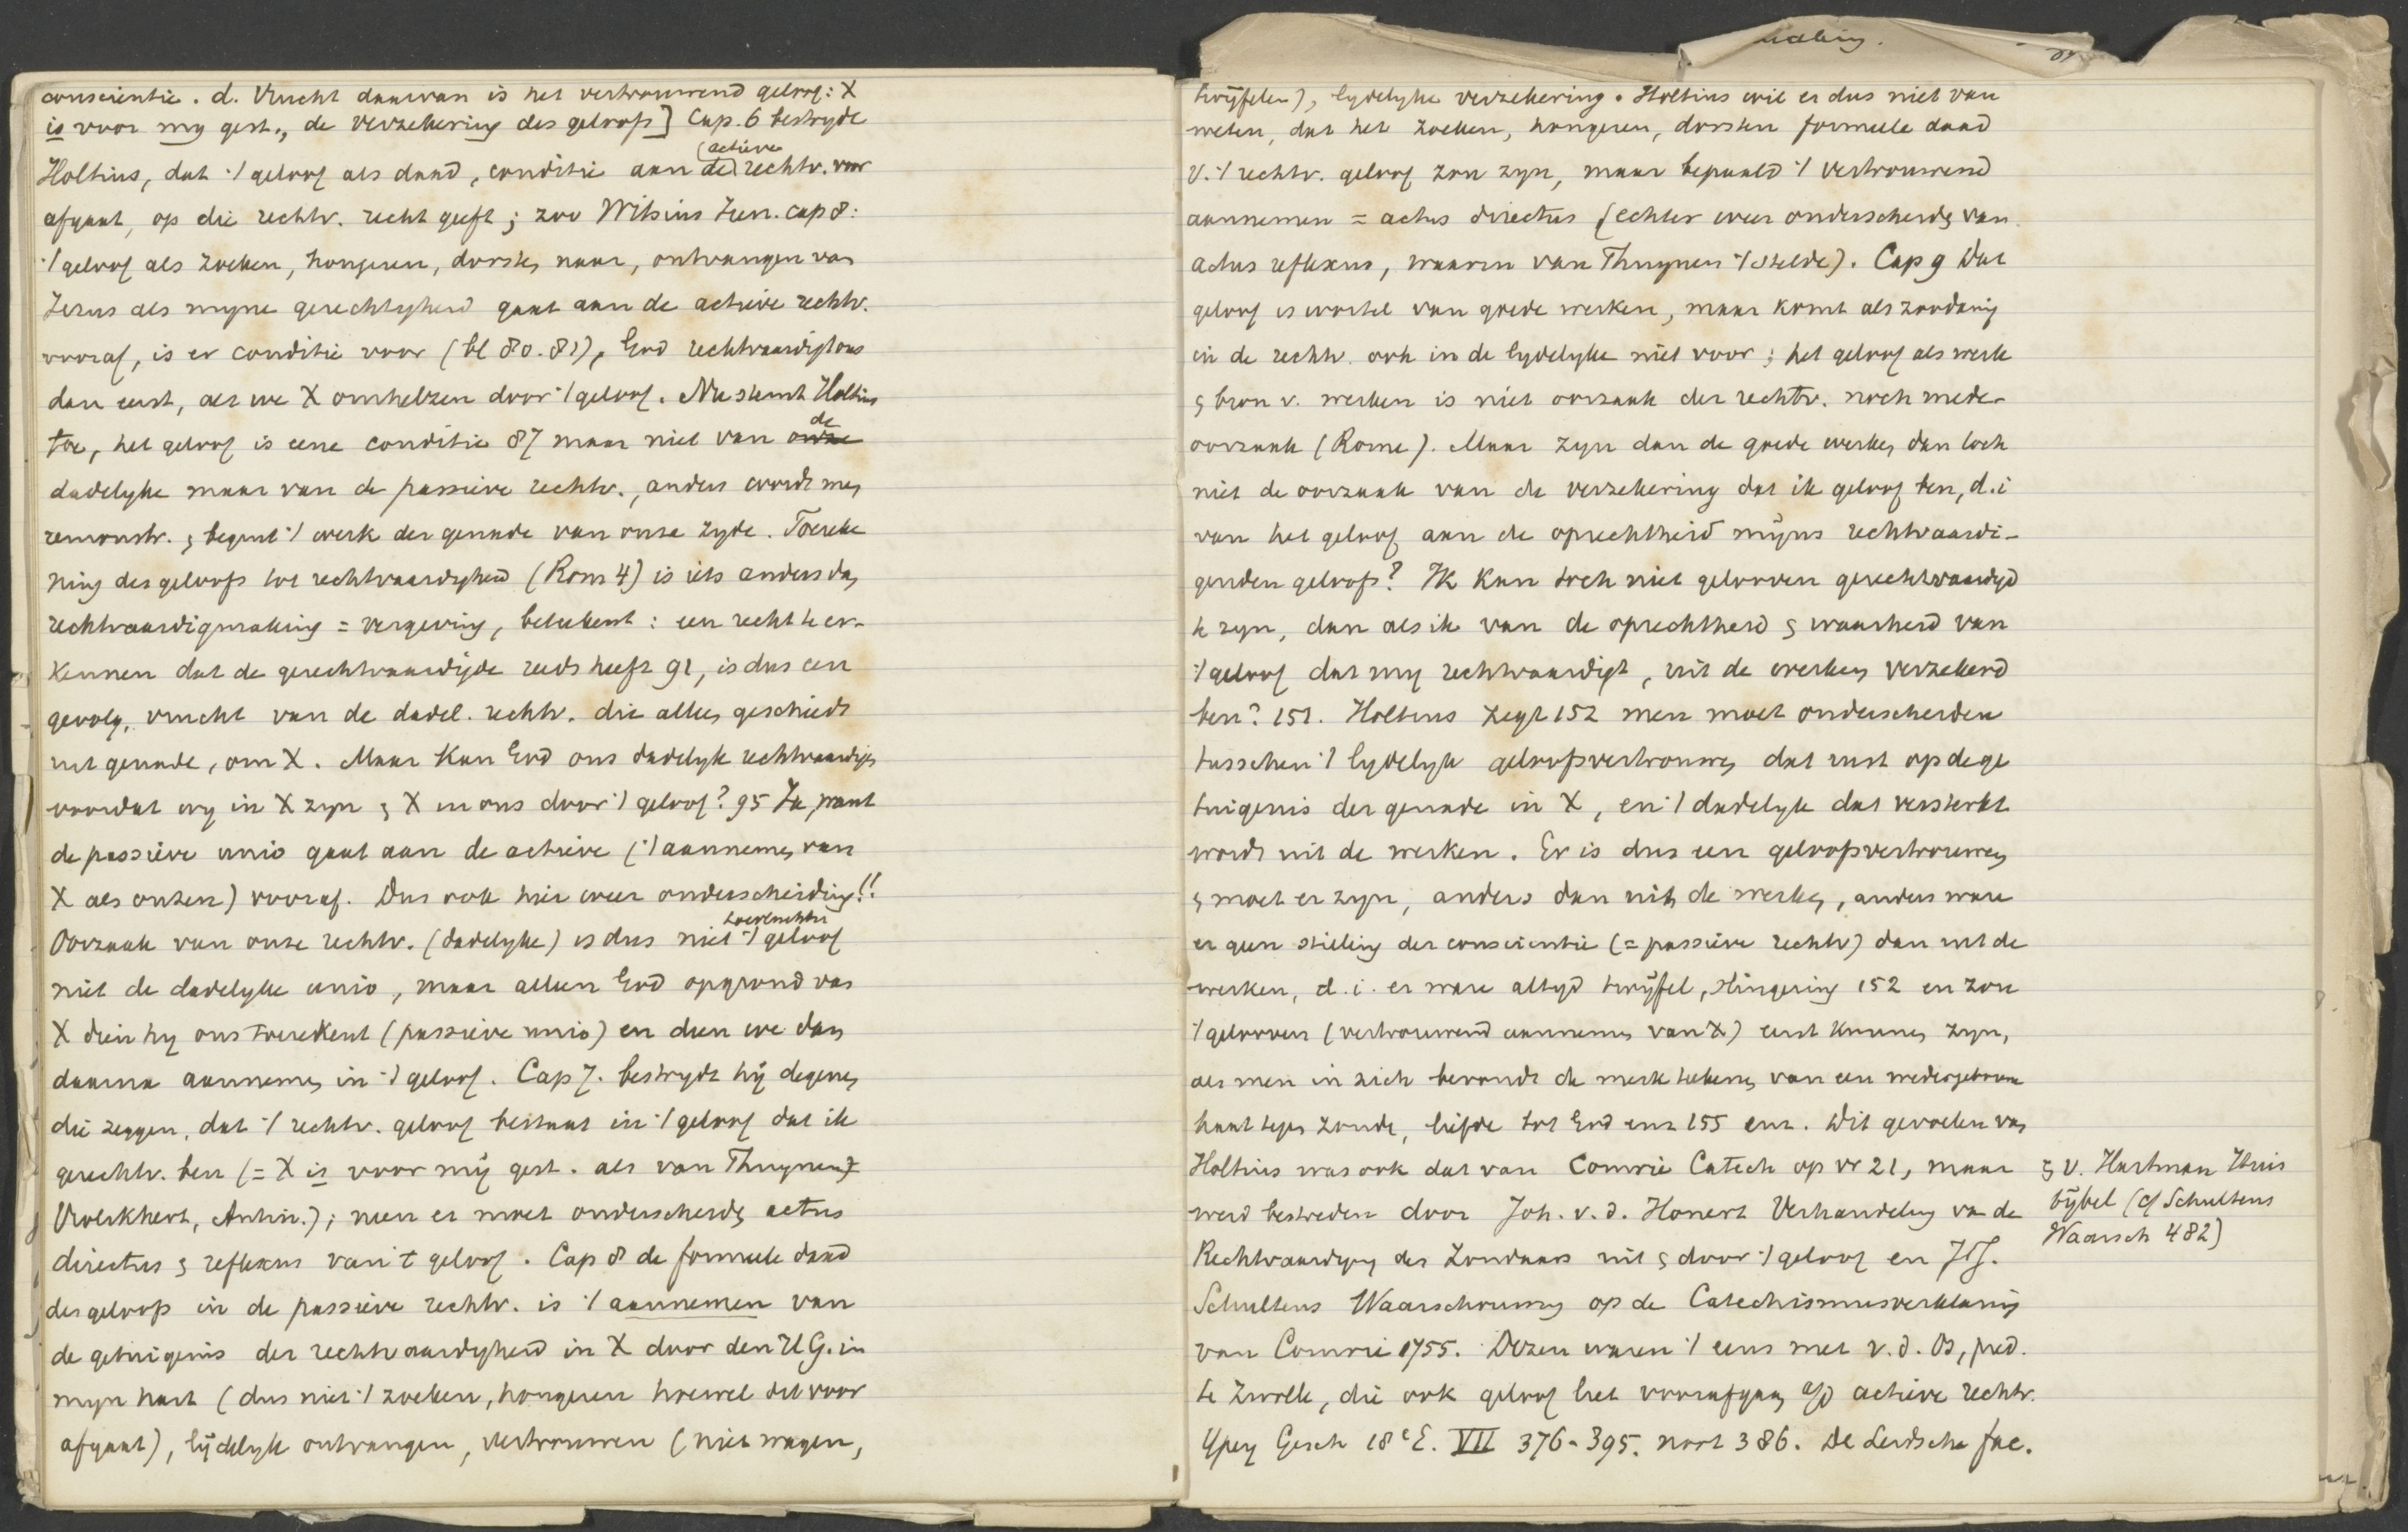 conscientie. d. Vrucht daarvan is het vertrouwend geloof: X
is voor my gest., de verzekering des geloofs] Cap. 6 bestrydt
(actieve
Holtius, dat ⁒ geloof als daad, conditie aan de) rechtv. voor
afgaat, op die rechtv. recht geeft; zoo Witsius Iren. cap 8:
⁒ geloof als zoeken, hongeren, dorsten naar, ontvangen van
Jezus als myne gerechtigheid gaat aan de actieve rechtv.
vooraf, is er conditie voor (bl 80. 81), God rechtvaardigt ons
dan eerst, als we X omhelzen door ⁒ geloof. Nu stemt Holtius
de
toe, het geloof is eene conditie 87 maar niet van onze
dadelyke maar van de passieve rechtv., anders wordt men
remonstr. en begint ⁒ werk der genade van onze zyde. Toereke
ning des geloofs tot rechtvaardigheid (Rom 4) is iets anders dan
rechtvaardigmaking = vergeving, beteekent: een recht te er-
kennen dat de gerechtvaardigde reeds heeft 91, is dus een
gevolg, vrucht van de dadel. rechtv. die alleen geschiedt
uit genade, om X. Maar kan God ons dadelyk rechtvaardigen
voordat wy in X zyn en X in ons door ⁒ geloof? 95 Ja, want
de passieve unio gaat aan de actieve (⁒ aannemen van
X als onzen) vooraf. Dus ook hier weer onderscheiding!!
toevluchtn
Oorzaak van onze rechtv. (dadelyke) is dus niet ⁒ geloof
niet de dadelyke unio, maar alleen God op grond van
X dien hy ons toerekent (passieve unio) en dien we dan
daarna aannemen in ⁒ geloof. Cap 7. bestrydt hij degenen
die zeggen, dat ⁒ rechtv. geloof bestaat in ⁒ geloof dat ik
gerechtv. ben (= X is voor mij gest. als van Thuynen
Vrolikhert, Antin.); neen er moet onderscheiden actus
directus en reflexus van 't geloof. Cap 8 de formeele daad
des geloofs in de passieve rechtv. is ⁒ aannemen van
de getuigenis der rechtvaardigheid in X door den H G. in
myn hart (dus niet ⁒ zoeken, hongeren hoewel dit voor
afgaat), lijdelyk ontvangen, vertrouwen (niet wagen,
twijfelen), lydelyke verzekering. Holtius wil er dus niet van
weten, dat het zoeken, hongeren, dorsten formeele daad
v. ⁒ rechtv. geloof zou zyn, maar bepaald ⁒ vertrouwend
aannemen = actus directus (echter weer onderscheiden van
actus reflexus, waarin van Thuynen ⁒ stelde). Cap 9 Dat
geloof is wortel van goede werken, maar komt als zoodanig
in de rechtv. ook in de lydelyke niet voor; het geloof als werk
en bron v. werken is niet oorzaak der rechtv. noch mede-
oorzaak (Rome). Maar zyn dan de goede werken dan toch
niet de oorzaak van de verzekering dat ik geloof ben, d.i
van het geloof aan de oprechtheid mijns rechtvaardi-
genden geloofs? Ik kan toch niet gelooven gerechtvaardigd
te zyn, dan als ik van de oprechtheid en waarheid van
⁒ geloof dat my rechtvaardigt, uit de werken verzekerd
ben? 151. Holtius zegt 152 men moet onderscheiden
tusschen ⁒ lydelyk geloofsvertrouwen dat rust op de ge
tuigenis der genade in X, en ⁒ dadelyk dat versterkt
wordt uit de werken. Er is dus een geloofsvertrouwen
en moet er zyn, anders dan uit de werken, anders ware
er geen stilling der conscientie (= passieve rechtv) dan uit de
werken, d.i. er ware altyd twijfel, slingering 152 en zou
⁒ gelooven (vertrouwend aannemen van X) eerst kunnen zyn,
als men in zich bevondt de merkteekenen van een wedergeborene
haat tegen zonde, liefde tot God enz 155 enz. Dit gevoelen van
Holtius was ook dat van Comrie Catech op vr 21, maar
werd bestreden door Joh. v. d. Honert Verhandeling van de
Rechtvaardiging des Zondaars uit en door ⁒ geloof en JJ.
Schultens Waarschuwing op de Catechismusverklaring
van Comrie 1755. Dezen waren ⁒ eens met v. d. Os, pred.
te Zwolle, die ook geloof liet voorafgaan a/d actieve rechtv.
Ypey Gesch 18e E. VII 376-395. noot 386. De Leidsche fac.
en v. Hartman Huis
bijbel (cf Schultens
Waarsch 482)